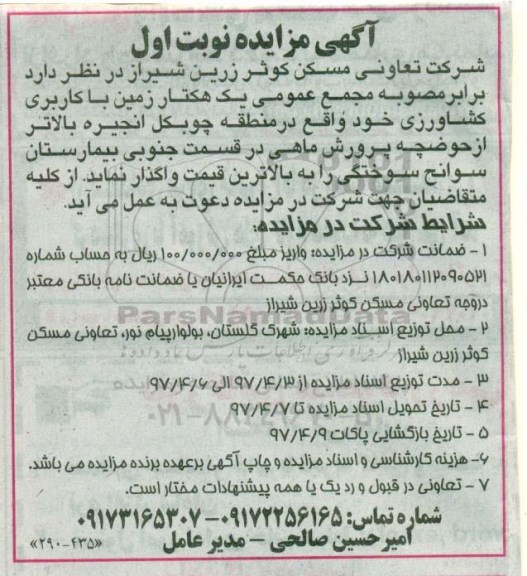 آگهی مزایده نوبت اول
شرکت تعاونی مسکن کوثر زرین شیراز در نظر دارد
برابر مصوبه مجمع عمومی یک هکتار زمین با کاربری
کشاورزی خود واقع در منطقه چوبکل انجیره بالاتر
از حوضچه پرورش ماهی در قسمت جنوبی بیمارستان
سوانح سوختگی را به بالاترین قیمت واگذار نماید. از کلیه
متقاضیان جهت شرکت در مزایده دعوت به عمل می آید.
شرایط شرکت در مزایده:
۱- ضمانت شرکت در مزایده: واریز مبلغ ۱۰۰/۰۰۰/۰۰۰ ریال به حساب شماره
۱۸۰۱۸۰۱۱۲۰۹۰۵۲۱ نزد بانک حکمت ایرانیان یا ضمانت نامه بانکی معتبر
دروجه تعاونی مسکن کوثر زرین شیراز
۲- محل توزیع اسناد مزایده: شهرک گلستان، بولوار پیام نور، تعاونی مسکن
کوثر زرین شیراز
۳- مدت توزیع اسناد مزایده از ۹۷/۴/۳ الی ۹۷/۴/۶
۴- تاریخ تحویل اسناد مزایده تا ۹۷/۴/۷
۵- تاریخ بازگشایی پاکات ۹۷/۴/۹
۶- هزینه کارشناسی و اسناد مزایده و چاپ آگهی برعهده برنده مزایده می باشد.
۷- تعاونی در قبول و رد یک یا همه پیشنهادات مختار است.
شماره تماس: ۰۹۱۷۲۲۵۶۱۶۵-۰۹۱۷۳۱۶۵۳۰۷
امیرحسین صالحی - مدیر عامل
«۲۹۰-۴۳۵»
ParsNamadData